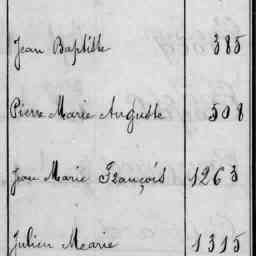 Jean Baptiste 385
Pierre Marie Auguste 508
Jean Marie François 1263
Julien Marie 1315